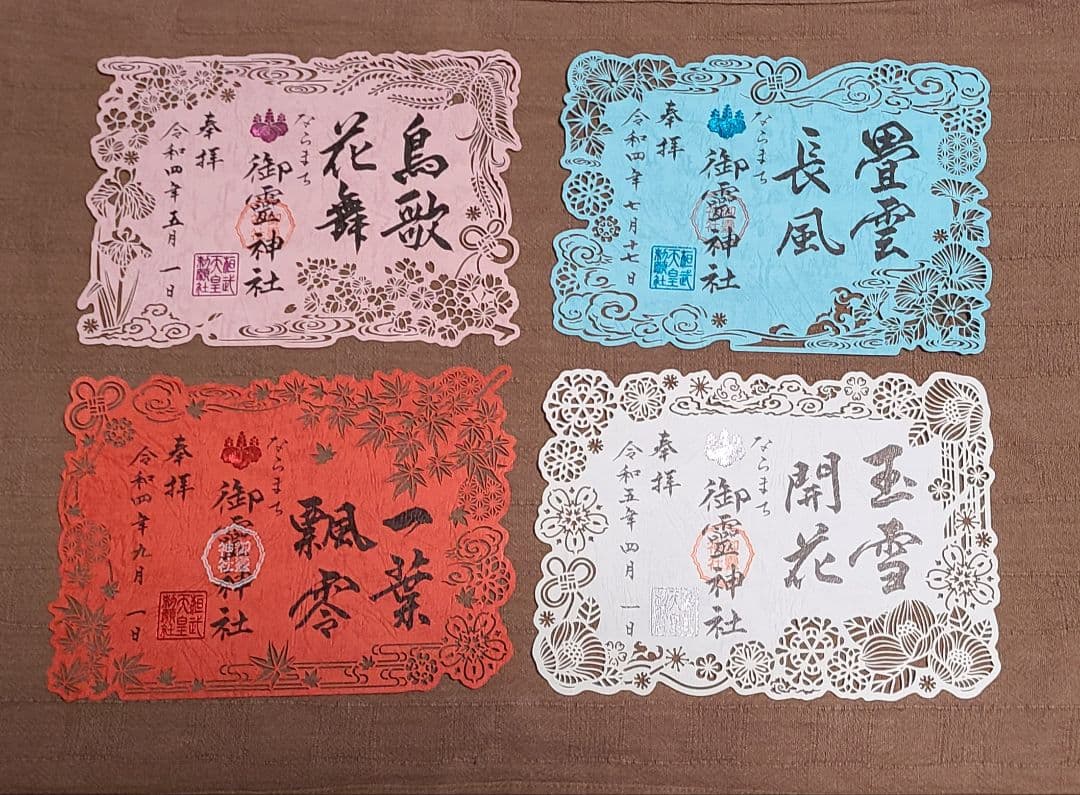 鳥歌
花舞
ならまち
御霊神社
桓武
天皇
勅願社
奉拝
令和四年五月一日
畳雲
長風
ならまち
御霊神社
桓武
天皇
勅願社
奉拝
令和四年七月十七日
一葉
飄零
ならまち
御霊神社
御霊
神社
桓武
天皇
勅願社
奉拝
令和四年九月一日
玉雪
開花
ならまち
御霊神社
奉拝
令和五年四月一日